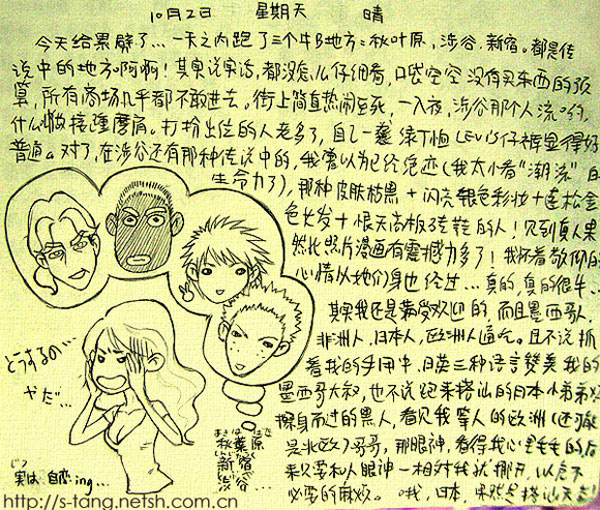 10月2日 星期天 晴
今天给累劈了…一天之内跑了三个牛B地方:秋叶原,涉谷,新宿。都是传
说中的地方啊啊!其实说实话,都没怎么仔细看,口袋空空没有买东西的预
算,所有商场几乎都不敢进去。街上简直热闹至死,一入夜,涉谷那个人流哟,
什么叫做接踵磨肩。打扮出位的人老多了,自己一袭绿T恤LEVIS仔裤显得好
普通。对了,在涉谷还有那种传说中的,我曾以为已经绝迹(我太小看"潮流"的
生命力了),那种皮肤枯黑+闪亮银色彩妆+蓬松金
色长发+恨天高板砖鞋的人!见到真人果
然比照片漫画有震撼力多了!我怀着敬仰的
心情从她们身边经过…真的,真的很牛…
其实我还是满受欢迎的,而且墨西哥人,
非洲人,日本人,欧洲人通吃。且不说抓
着我的手用中,日英三种语言赞美我的
墨西哥大叔,也不说跑来搭讪的日本小弟弟以
擦身而过的黑人,看见我
是北欧)哥哥,那眼神,看得我心里毛毛的后
来只要和人眼神一相对我就挪开,以免不
必要的麻烦。哦,日本,果然是搭讪天
どうするの…
やだ…
あきはばら
秋葉原
しんじゅく しぶや
新宿 涉谷
じつ
実は 自恋ing…
http://s-tang.netsh.com.cn